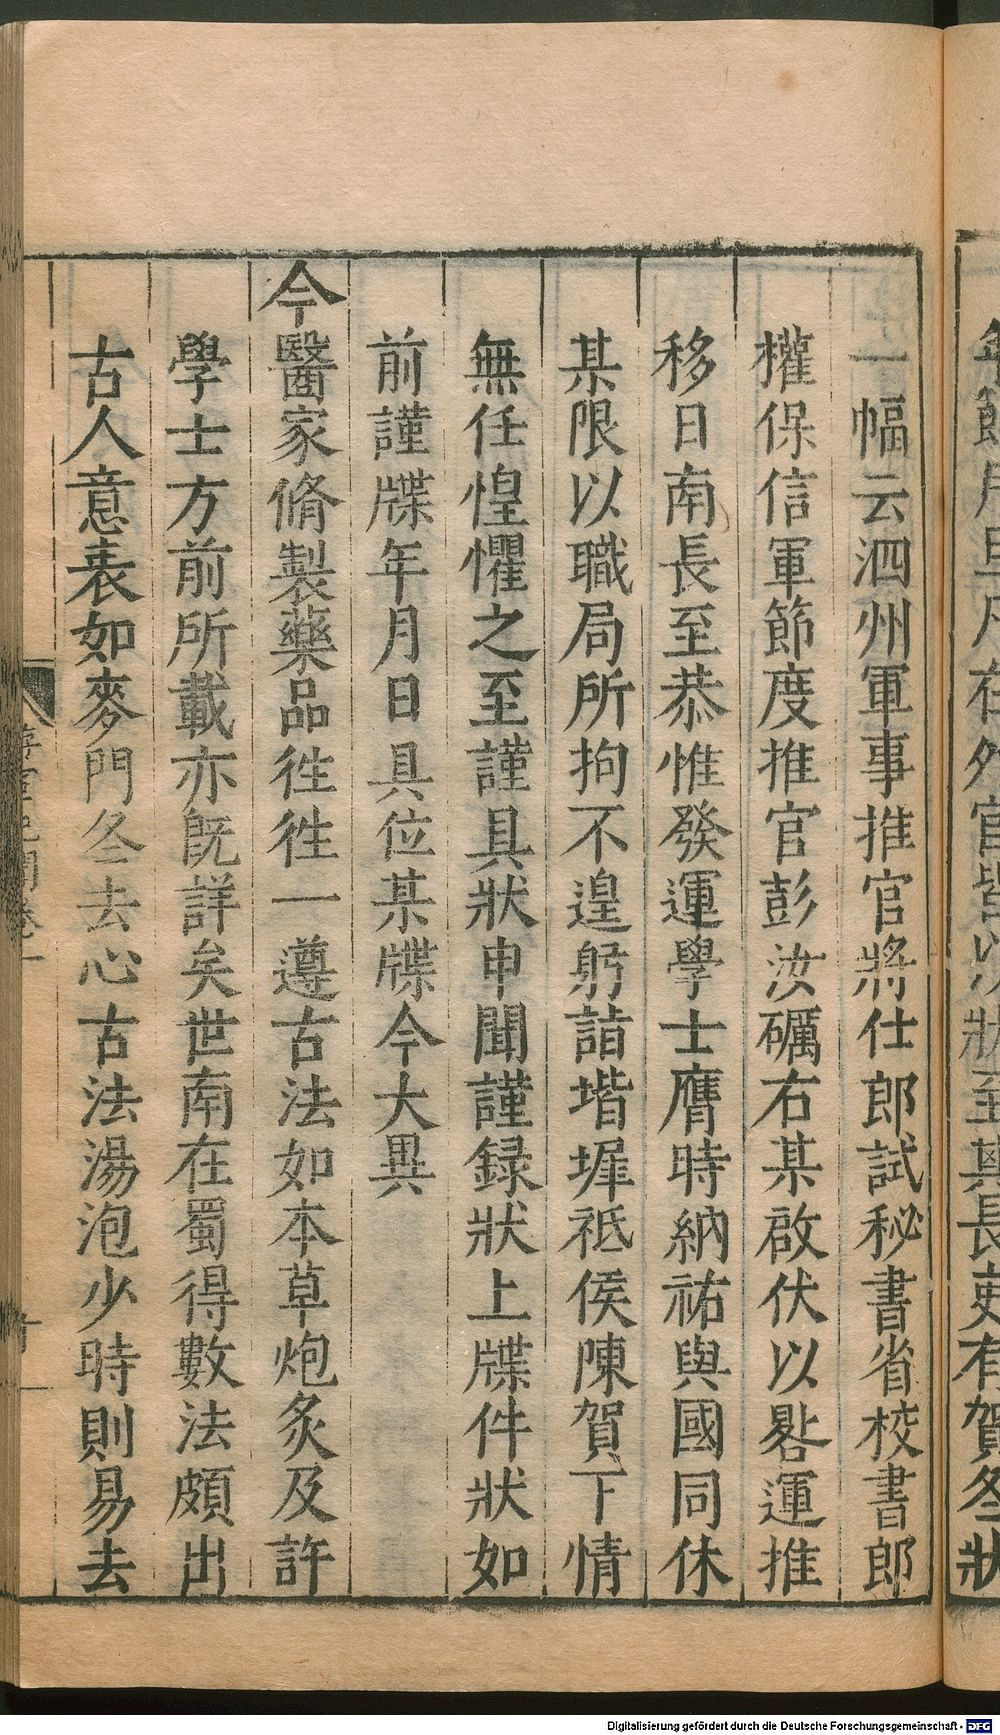 一幅云泗州軍事推官將仕郎試秘書省校書郎
權保信軍節度推官彭汝礪右某啟伏以晷運推
移日南長至恭惟發運學士膺時納祐與國同休
某限以職局所拘不遑躬詣堦墀祗侯陳賀下情
無任惶懼之至謹具狀申聞謹録狀上牒件狀如
前謹牒年月日具位某牒今大異
今醫家脩製藥品徃徃一遵古法如本草炮炙及許
學士方前所載亦既詳矣世南在蜀得數法頗出
古人意表如麥門冬去心古法湯泡少時則易去
Digitalisierung gefördert durch die Deutsche Forschungsgemeinschaft - DFG